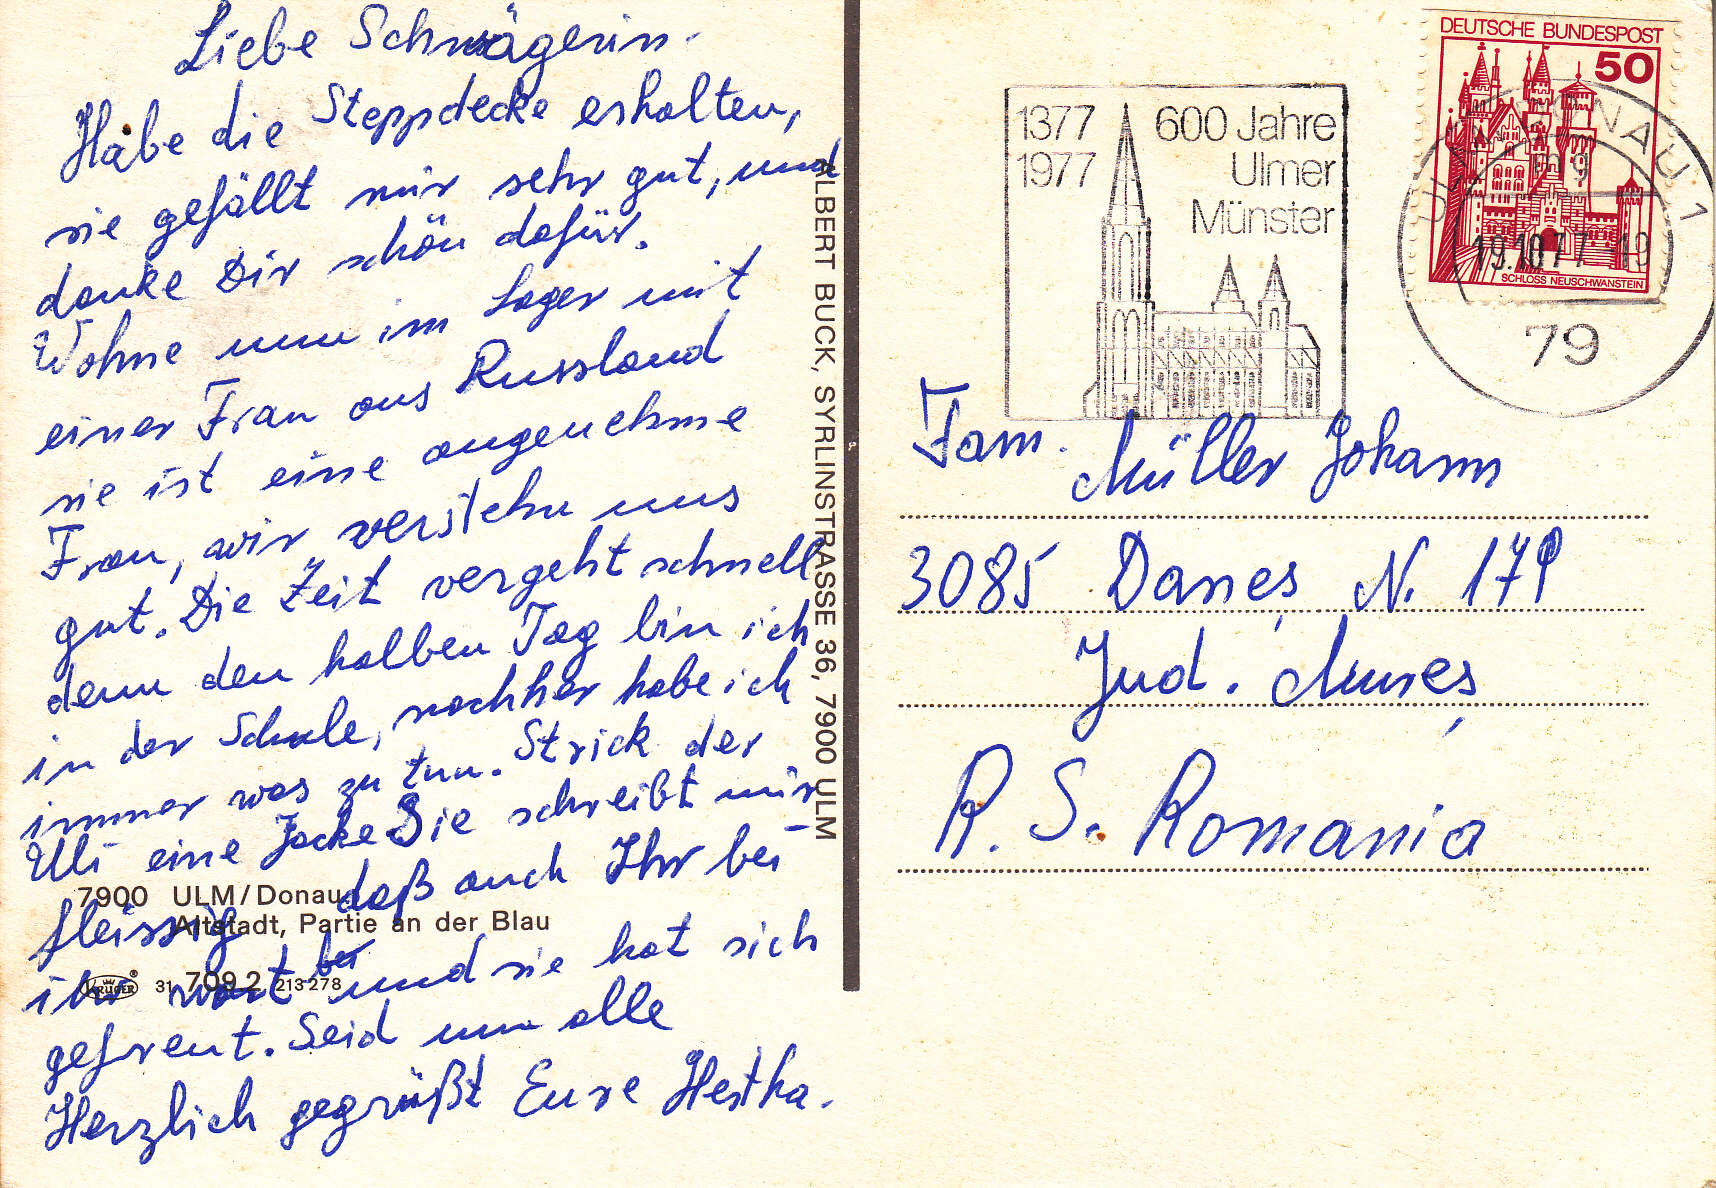 Liebe Schwägerin.
Habe die Steppdecke erhalten,
sie gefällt mir sehr gut, und
danke Dir schön dafür.
Wohne nun im Lager mit
einer Frau aus Russland
sie ist eine angenehme
Frau, wir verstehn uns
gut. Die Zeit vergeht schnell
denn den halben Tag bin ich
in der Schule, nachher habe ich
immer was zu tun. Strick der
Ulli eine Jacke Sie schreibt mir
fleissig daß auch Ihr bei
ihr wart und sie hat sich
gefreut. Seid nun alle
Herzlich gegrüßt Eure Hertha.
7900 ULM/Donau
Altstadt, Partie an der Blau
KRÜGER 31 709 2 213 278
ALBERT BUCK, SYRLINSTRASSE 36, 7900 ULM
1377 600 Jahre
1977 Ulmer
Münster
DEUTSCHE BUNDESPOST
50
SCHLOSS NEUSCHWANSTEIN
ULM, DONAU 1
mg
19.10.77-19
79
Fam. Müller Johann
3085 Daneş N. 179
Jud. Mureş
R. S. Romania